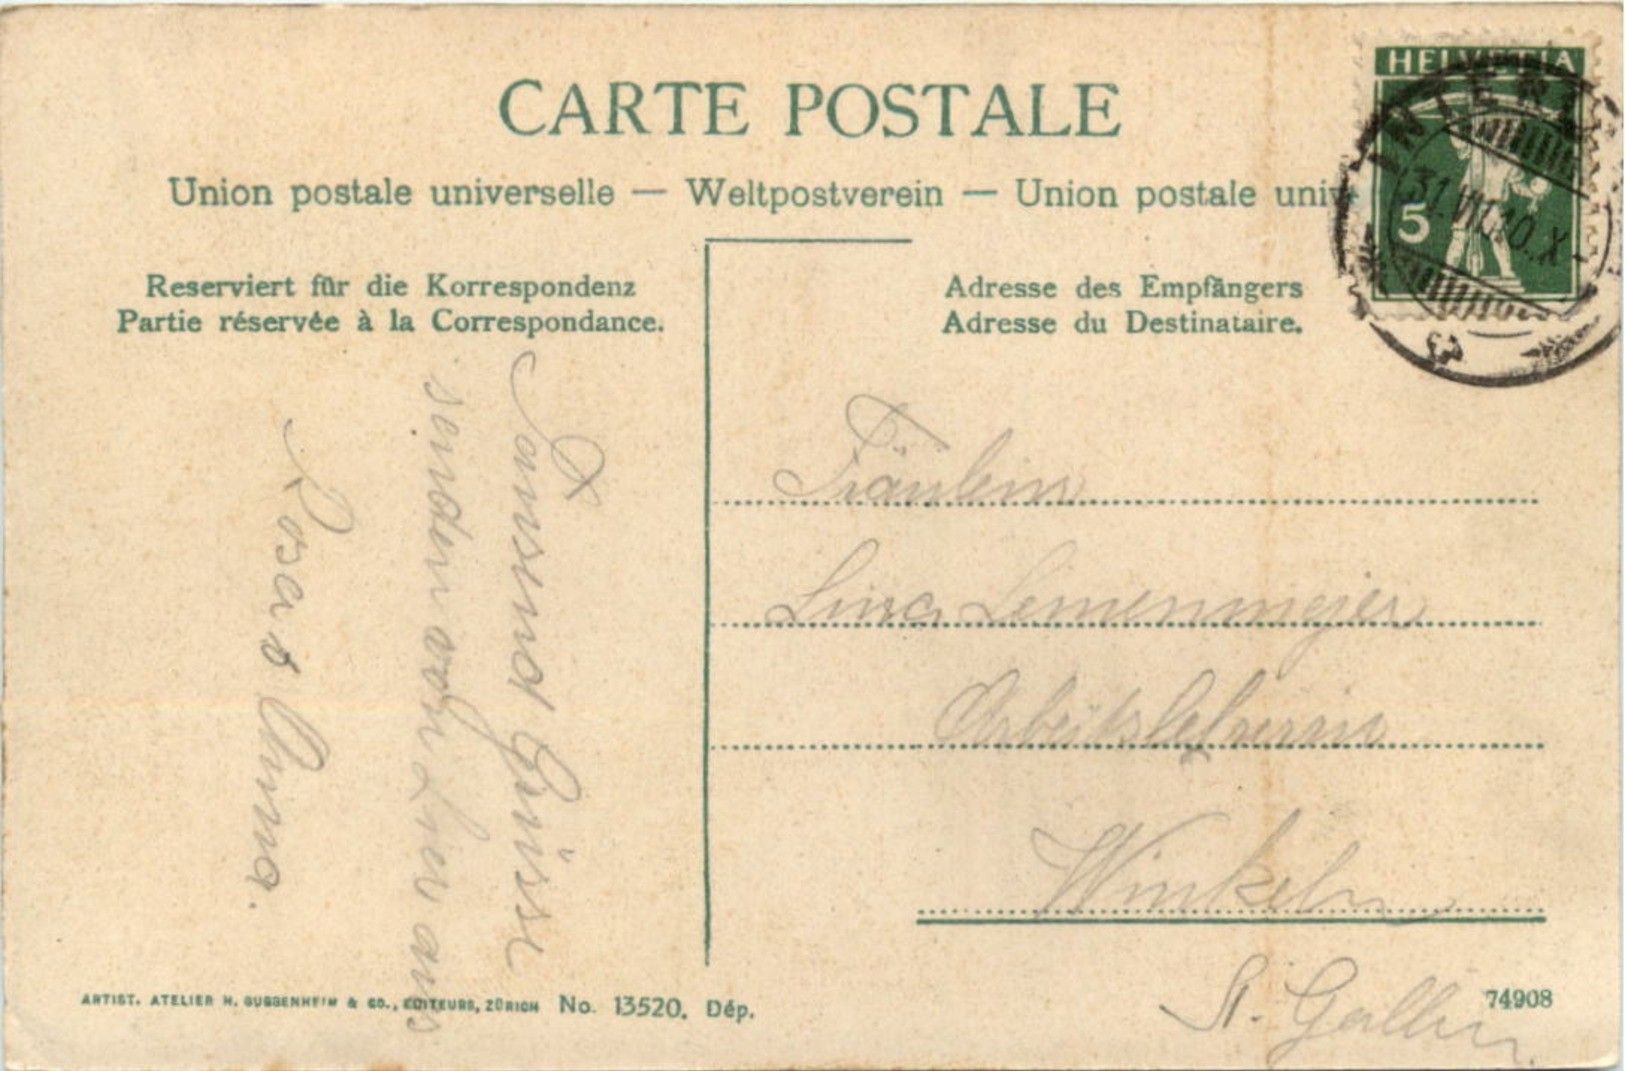 CARTE POSTALE
Union postale universelle — Weltpostverein — Union postale univ
HELVETIA
5
31.VII.10.X
Reserviert für die Korrespondenz
Partie réservée à la Correspondance.
Adresse des Empfängers
Adresse du Destinataire.
Tausend Grüsse
senden von hier aus
Rosa & Anna.
Fräulein
Lina Lemenmejer
Arbeitslehrerin
Winkeln
St. Gallen.
ARTIST. ATELIER H. GUGGENHEIM & CO., EDITEURS, ZÜRICH No. 13520. Dép.
74908